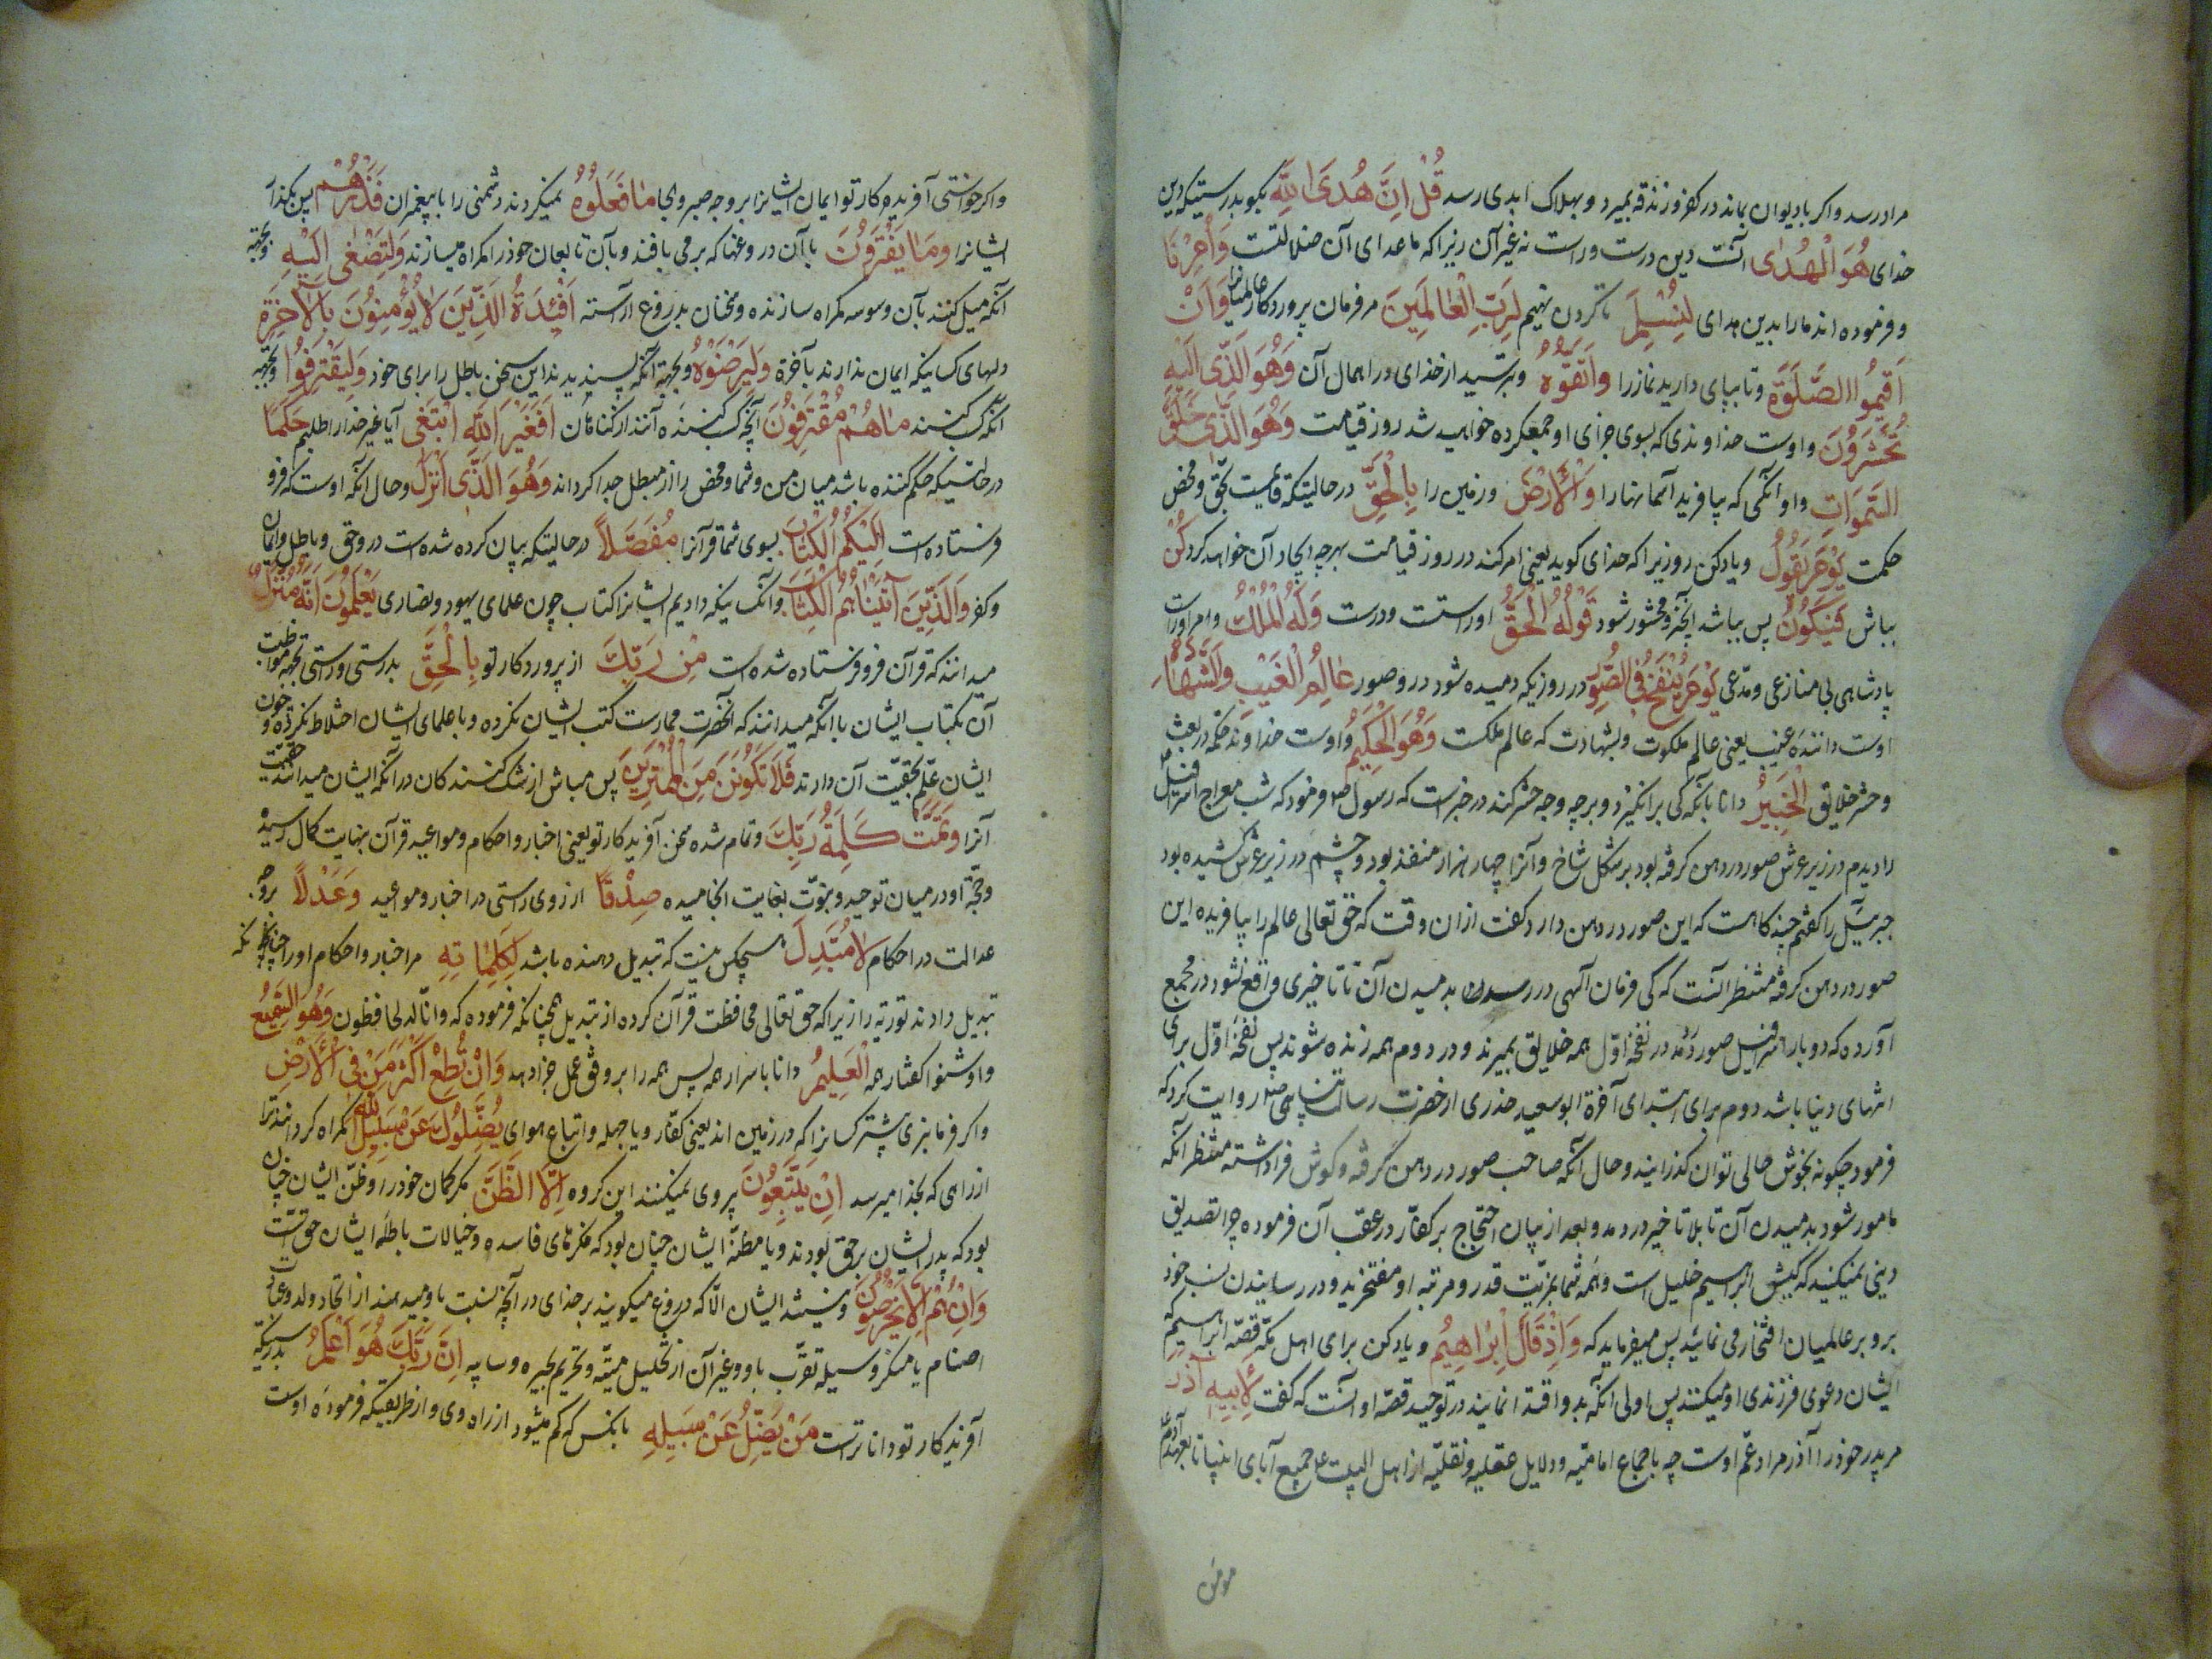 مرادرسد واکر بادیوان بماند در کفر و زندقه بمیرد و بهلاک ابدی رسد قُلْ اِنَّ هُدَی اللّهِ بکو بدرستیکه دین
خدای هُوَ الْهُدٰی آنست دین درست و راست نه غیر آن زیرا که ماعدای آن ضلالتست وَاُمِرْنَا
و فرموده اند ما را بدین هدای لِنُسْلِمَ تا کردن نهیم لِرَبِّ الْعٰالَمِینَ مر فرمان پروردکار عالمیانرا وَاَنْ
اَقِیمُوا الصَّلَوةَ و تا بپای دارید نماز را وَاتَّقُوهُ و بترسید از خدای در اهمال آن وَهُوَ الَّذِی اِلَیْهِ
تُحْشَرُونَ و اوست خداوندی که بسوی جزای او جمعکرده خواهید شد روز قیامت وَهُوَ الَّذِی خَلَقَ
السَّمٰوَاتِ و او آنکسی که بیافرید آسمانها را وَالْاَرْضَ و زمین را بِالْحَقِّ در حالیتکه قایمست بحق و محض
حکمت یَوْمَ یَقُولُ و یاد کن روزیرا که خدای کوید یعنی امر کند در روز قیامت بهرچه ایجاد آن خواهد کرد کُنْ
بباش فَیَکُونُ پس بباشد آنچیز و محشور شود قَوْلُهُ الْحَقُّ اوراستت و درست وَلَهُ الْمُلْکُ و امر اوراست
پادشاهی بی منازعی و مدّعی یَوْمَ یُنْفَخُ فِی الصُّورِ در روزیکه دمیده شود در و صور عٰالِمُ الْغَیْبِ وَالشَّهٰادَةِ
اوست دانندهٔ غیب یعنی عالم ملکوت و بشهادت که عالم ملکست وَهُوَ الْحَکِیمُ و اوست خداوند حکمه در بعث
و حشر خلایق الْخَبِیرُ دانا بآنکه کی برانکیزد و برچه وجه حشر کند در خبر است که رسول ص فرمود که شب معراج اسرافیل
را دیدم در زیر عرش صور در دهن کرفته بود بر شکل شاخ و آنرا چهار هزار منفذ بود و چشم در زیر عرش کشیده بود
جبرئیل را کفتم چند کاهست که این صور در دهن دارد کفت از ان وقت که حق تعالی عالم را بیافریده این
صور در دهن کرفته منتظر آنست که کی فرمان آلهی در رسد بدمیدن آن تا تاخیری واقع نشود در مجمع
آورده که دوبار اسرافیل صور دمد در نفخهٔ اوّل همه خلایق بمیرند و در دوم همه زنده شوند پس نفخهٔ اوّل برای
انتهای دنیا باشد دوم برای ابتدای آخرة ابوسعید خدری از حضرت رسالت پناهی ص روایت کرد که
فرمود چکونه بخوش حالی توان کذرانید و حال آنکه صاحب صور در دهن کرفته و کوش فراداشته منتظر آنکه
مامور شود بدمیدن آن تا بلا تاخیر در دمد و بعد از بیان احتجاج بر کفّار در عقب آن فرموده چرا تصدیق
دینی نمیکنید که کیش ابراهیم خلیل است و همه شما بمزیّت قدر و مرتبه او مفتخرید و در رسانیدن نسب خود
برو بر عالمیان افتخار می نمائید پس میفرماید که وَاِذْ قَالَ اِبْرٰاهِیمُ و یاد کن برای اهل مکّه قصّه ابراهیم که
ایشان دعوی فرزندی او میکنند پس اولی آنکه بدو اقتدا نمایند در توحید قصّه او آنست که کفت لِاَبِیهِ آذَرَ
مر پدر خود را آذر مراد عمّ اوست چه باجماع امامیّه و دلایل عقلیه و نقلیّه از اهل البیت ع جمیع آبای انبیا تا بعهد آدم
مومن
واکر خواستی آفریدکار تو ایمان ایشانرا بر وجه جبر و الجا مٰا فَعَلُوهُ نمیکردند دشمنی را با پیغمبران فَذَرْهُمْ پس بکذار
ایشانرا وَمٰا یَفْتَرُونَ با آن دروغها که بر می بافند و بآن تابعان خود را کمراه میسازند وَلِتَصْغٰی اِلَیْهِ و بجهة
آنکه میل کنند بآن وسوسه کمراه سازنده و سخنان بدروغ آراسته اَفْئِدَةُ الَّذِینَ لاٰ یُؤْمِنُونَ بِالْاٰخِرَةِ
دلهای کسانیکه ایمان ندارند بآخرة وَلِیَرْضَوْهُ و بجهة آنکه پسندیدند این سخن باطل را برای خود وَلِیَقْتَرِفُوا و بجهة
آنکه کسب کنند مٰاهُمْ مُقْتَرِفُونَ آنچه کسب کننده آنند از کناهان اَفَغَیْرَ اللّهِ اَبْتَغِی آیا غیر خدا را طلبم حَکَمًا
در حالتیکه حکم کننده باشد میان من و شما و محق را از مبطل جدا کرداند وَهُوَ الَّذِی اَنْزَلَ و حال آنکه اوست که فرو
فرستاده است اِلَیْکُمُ الْکِتٰابَ بسوی شما قرآنرا مُفَصَّلًا در حالیتکه بیان کرده شده است در و حق و باطل و ایمان
و کفر وَالَّذِینَ آتَیْنٰاهُمُ الْکِتٰابَ و آنکسانیکه دادیم ایشانرا کتاب چون علمای یهود و نصاری یَعْلَمُونَ اَنَّهُ مُنَزَّلٌ
میدانند که قرآن فرو فرستاده شده است مِنْ رَبِّکَ از پروردکار تو بِالْحَقِّ بدرستی و راستی بجهة مواظبت
آن بکتاب ایشان با آنکه میدانند که آنحضرت ممارست کتب ایشان نکرده و با علمای ایشان اختلاط نکرده و چون
ایشان علم بحقیّت آن دارند فَلاٰ تَکُونَنَّ مِنَ الْمُمْتَرِینَ پس مباش از شک کنندکان در آنکه ایشان میدانند حقیّت
آنرا وَتَمَّتْ کَلِمَةُ رَبِّکَ و تمام شده سخن آفریدکار تو یعنی اخبار و احکام و مواعید قرآن بنهایت کمال رسیده
و حجّة او در میان توحید و نبوّت بغایت انجامیده صِدْقًا از روی راستی در اخبار و مواعید وَعَدْلًا بر وجه
عدالت در احکام لاٰ مُبَدِّلَ هیچکس نیست که تبدیل دهنده باشد لِکَلِمٰاتِهِ مر اخبار و احکام او را چنانچه
تبدیل دادند توریة را زیرا که حق تعالی محافظت قرآن کرده از تبدیل همچنانکه فرموده که وانّا له لحافظون وَهُوَ السَّمِیعُ
و او شنوا کفتار همه الْعَلِیمُ دانا باسرار همه پس همه را بر وفق عمل جزا دهد وَاِنْ تُطِعْ اَکْثَرَ مَنْ فِی الْاَرْضِ
و اکر فرمانبری بیشتر کسانرا که در زمین اند یعنی کفّار و یا جهله و اتباع هوای یُضِلُّوکَ عَنْ سَبِیلِ اللّهِ کمراه کردانند ترا
از راهی که بخدا میرسد اِنْ یَتَّبِعُونَ پیروی نمیکنند این کروه اِلَّا الظَّنَّ مکر کمان خود را و ظنّ ایشان چنان
بود که پدر ایشان بر حق بودند و یا مظنّهٔ ایشان چنان بود که فکرهای فاسده و خیالات باطلهٔ ایشان حق است
وَاِنْ هُمْ اِلاَّ یَخْرُصُونَ و نیستند ایشان الّا که دروغ میکویند بر خدای در آنچه نسبت باو میدهند از اتخاذ ولد و
اصنام یا مسکر وسیله تقرّب باو و غیر آن از تحلیل میته و تحریم بحیره و سایبه اِنَّ رَبَّکَ هُوَ اَعْلَمُ بدرستیکه
آفریدکار تو داناتر است مَنْ یَضِلُّ عَنْ سَبِیلِهِ بآنکس که کم میشود از راه وی و از طریقیکه فرمودهٔ اوست